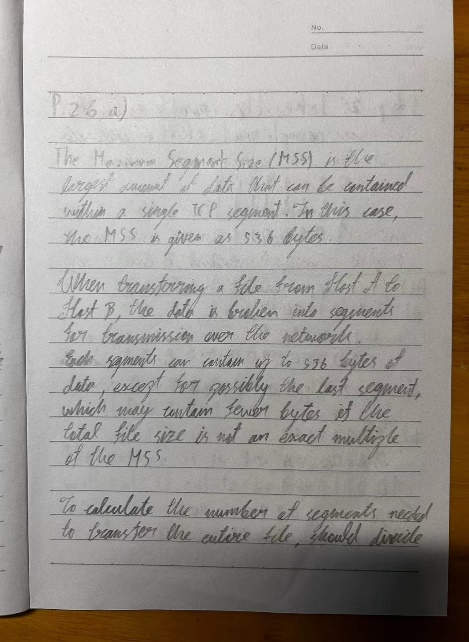 No.
Date
P. 26 a)
The Maximum Segment Size (MSS) is the
largest amount of data that can be contained
within a single TCP segment. In this case,
the MSS is given as 536 bytes.
When transferring a file from Host A to
Host B, the data is broken into segments
for transmission over the network.
Each segments can contain up to 536 bytes of
data, except for possibly the last segment,
which may contain fewer bytes if the
total file size is not an exact multiple
of the MSS
To calculate the number of segments needed
to transfer the entire file, should divide